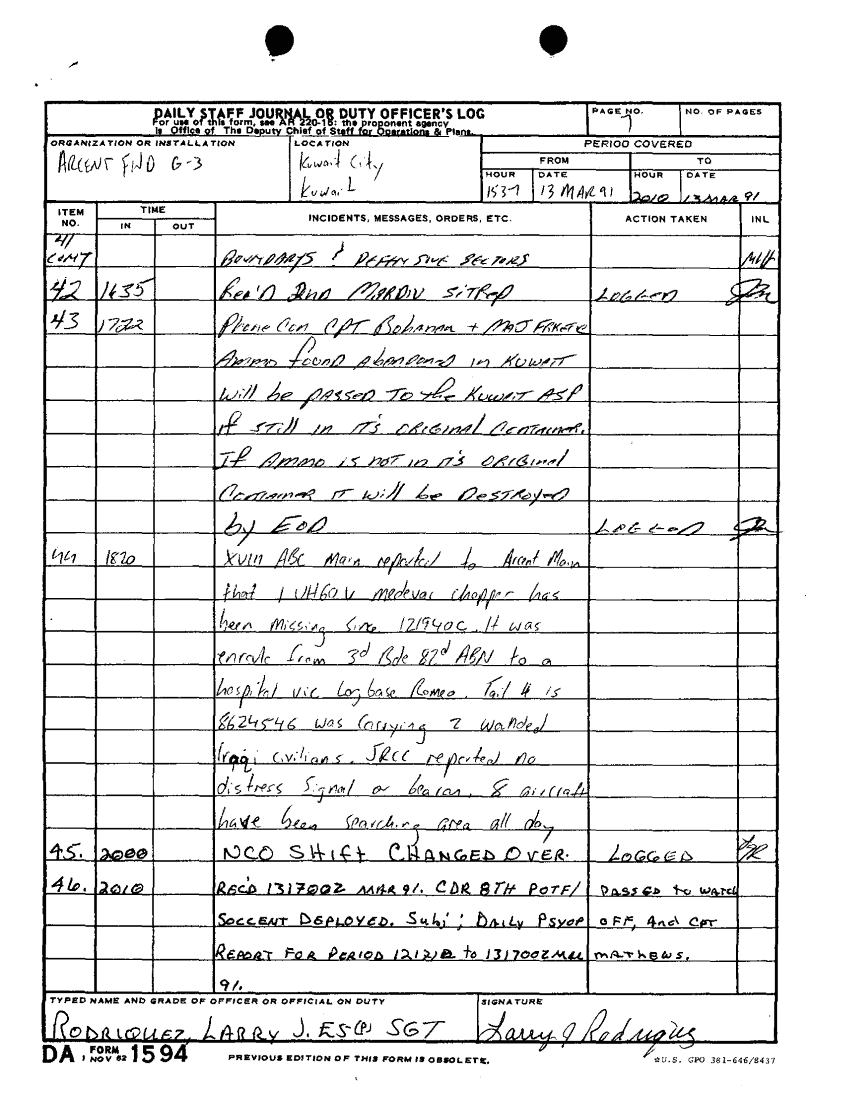 DAILY STAFF JOURNAL OR DUTY OFFICER'S LOG
For use of this form, see AR 220-15: the proponent agency
is Office of The Deputy Chief of Staff for Operations & Plans.
PAGE NO.
7
NO. OF PAGES
ORGANIZATION OR INSTALLATION
ARCENT FWD G-3
LOCATION
Kuwait City
Kuwait
PERIOD COVERED
FROM
TO
HOUR
1537
DATE
13 MAR 91
HOUR
2010
DATE
13 MAR 91
ITEM NO.
TIME
IN
OUT
INCIDENTS, MESSAGES, ORDERS, ETC.
ACTION TAKEN
INL
41
CONT
BOUNDARYS & DEFENSIVE SECTORS
42 1635 Rec'd 2nd MARDIV SITREP LOGGED
43 1722 Phone Con CPT Bohanan + MAJ
Ammo found abandoned in KUWAIT
will be passed to the Kuwait ASP
if still in it's original container.
If Ammo is not in it's original
container it will be destroyed
by EOD LOGGED
44 1820 XVIII ABC Main reported to Arcent Main
that 1 UH60V medevac chopper has
been missing since 121940C. It was
enroute from 3d Bde 82d ABN to a
hospital vic Logbase Romeo. Tail # is
8624546 was carrying 2 wounded
Iraqi civilians. JRCC reported no
distress signal or beacon. 8 aircraft
have been searching area all day
45. 2000 NCO SHIFT CHANGED OVER. LOGGED
46. 2010 REC'D 131700Z MAR 91. CDR 8TH POTF/ PASSED TO WATCH
SOCCENT DEPLOYED. Subj; DAILY PSYOP OFF, And CPT
REPORT FOR PERIOD to 131700Z MAR MATHEWS.
91.
TYPED NAME AND GRADE OF OFFICER OR OFFICIAL ON DUTY
RODRIQUEZ, LARRY J. E5(P) SGT
SIGNATURE
Larry J Rodriguez
DA FORM 1 NOV 62 1594
PREVIOUS EDITION OF THIS FORM IS OBSOLETE.
☆U.S. GPO 381-646/8437